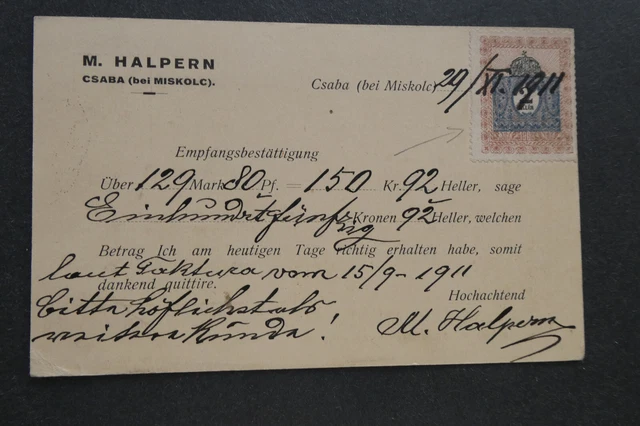 M. HALPERN
CSABA (bei MISKOLC).
Csaba (bei Miskolc) 29/XI. 1911
Empfangsbestättigung
Über 129 Mark 80 Pf. = 150 Kr. 92 Heller, sage
Einhundertfünfzig Kronen 92 Heller, welchen
Betrag Ich am heutigen Tage richtig erhalten habe, somit
laut Faktura vom 15/9 - 1911
dankend quittire.
Hochachtend
bitte höflichst als
weitere Kunda!
M. Halpern